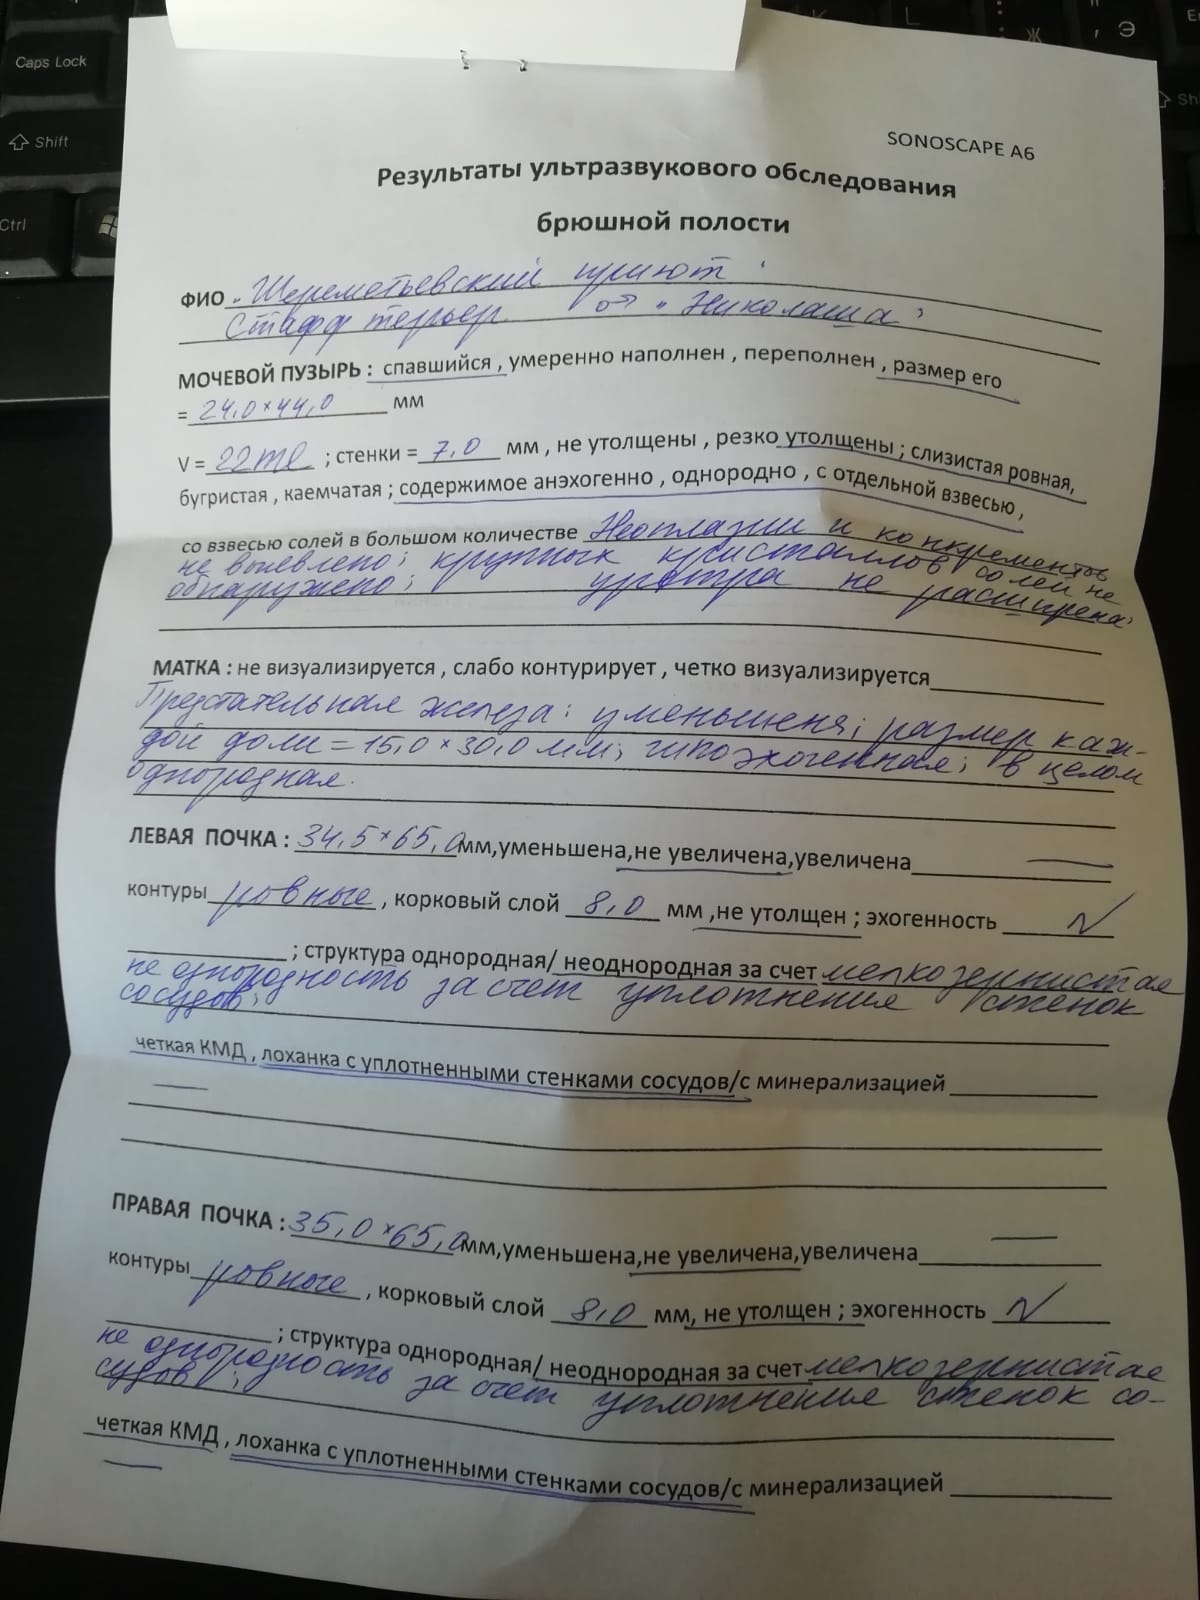 Caps Lock
Shift
Ctrl
K
L
Ж
Э
SONOSCAPE A6
Результаты ультразвукового обследования
брюшной полости
ФИО „Шереметьевский приют"
Стафф терьер. ♂ „Николаша"
МОЧЕВОЙ ПУЗЫРЬ : спавшийся , умеренно наполнен , переполнен , размер его
= 24,0×44,0 мм
V = 22ml ; стенки = 7,0 мм , не утолщены , резко утолщены ; слизистая ровная,
бугристая , каемчатая ; содержимое анэхогенно , однородно , с отдельной взвесью ,
со взвесью солей в большом количестве Неоплазии и конкрементов
не выявлено; крупных кристаллов солей не
обнаружено; уретра не расширена.
МАТКА : не визуализируется , слабо контурирует , четко визуализируется
Предстательная железа: уменьшена; размер каж-
дой доли = 15,0×30,0 мм; гипоэхогенная; в целом
однородная.
ЛЕВАЯ ПОЧКА : 34,5×65,0 мм,уменьшена,не увеличена,увеличена —
контуры ровные , корковый слой 8,0 мм ,не утолщен ; эхогенность N
; структура однородная/ неоднородная за счет мелкозернистая
не однородность за счет уплотнения стенок
сосудов;
четкая КМД , лоханка с уплотненными стенками сосудов/с минерализацией
—
ПРАВАЯ ПОЧКА : 35,0×65,0 мм,уменьшена,не увеличена,увеличена —
контуры ровные , корковый слой 8,0 мм, не утолщен ; эхогенность N
; структура однородная/ неоднородная за счет мелкозернистая
не однородность за счет уплотнения стенок со-
судов ;
четкая КМД , лоханка с уплотненными стенками сосудов/с минерализацией
—